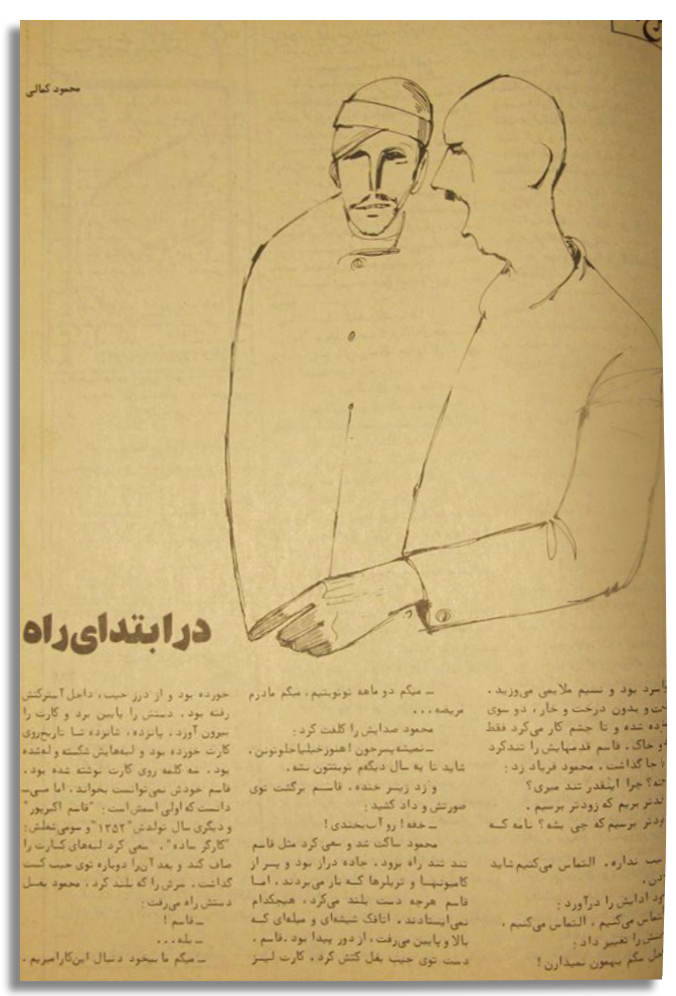 محمود کمالی
در ابتدای راه
سرد بود و نسیم ملایمی می‌وزید .
و بدون درخت و خار ، دو سوی
شده و تا چشم کار می‌کرد فقط
و خاک . قاسم قدمهایش را تندکرد
جا گذاشت . محمود فریاد زد :
چرا اینقدر تند میری؟
بریم که زودتر برسیم .
برسیم که چی بشه؟ نامه که
نداره . التماس می‌کنیم شاید
ادایش را درآورد :
می‌کنیم . التماس می‌کنیم .
را تغییر داد :
مگم بهمون نمیدارن !
ــ میگم دو ماهه تونوبتیم ، میگم مادرم
مریضه . . .
محمود صدایش را کلفت کرد :
ــ نمیشه‌پسرجون ! هنوزخیلیاجلوتونن .
شاید تا یه سال دیگه‌م نوبتتون نشه .
و زد زیر خنده . قاسم برگشت توی
صورتش و داد کشید :
ــ خفه ! رو آب بخندی !
محمود ساکت شد و سعی کرد مثل قاسم
تند تند راه برود . جاده دراز بود و پر از
کامیونها و تریلرها که بار می‌بردند . اما
قاسم هرچه دست بلند می‌کرد ، هیچکدام
نمی‌ایستادند . اتاقک شیشه‌ای و میله‌ای که
بالا و پایین می‌رفت ، از دور پیدا بود . قاسم ،
دست توی جیب بغل کتش کرد . کارت لیز
خورده بود و از درز جیب ، داخل آسترکتش
رفته بود . دستش را پایین برد و کارت را
بیرون آورد . پانزده ، شانزده تا تاریخ‌روی
کارت خورده بود و لبه‌هایش شکسته و له‌شده
بود . سه کلمه روی کارت نوشته شده بود .
قاسم خودش نمی‌توانست بخواند . اما می‌ــ
دانست که اولی اسمش است : "قاسم اکبرپور"
و دیگری سال تولدش "۱۳۵۲" و سومی شغلش :
"کارگر ساده" . سعی کرد لبه‌های کارت را
صاف کند و بعد آن‌را دوباره توی جیب کت
گذاشت . سرش را که بلند کرد ، محمود بغل
دستش راه می‌رفت :
ــ قاسم !
ــ بله . . .
ــ میگم ما بیخود دنبال این‌کارامیریم .